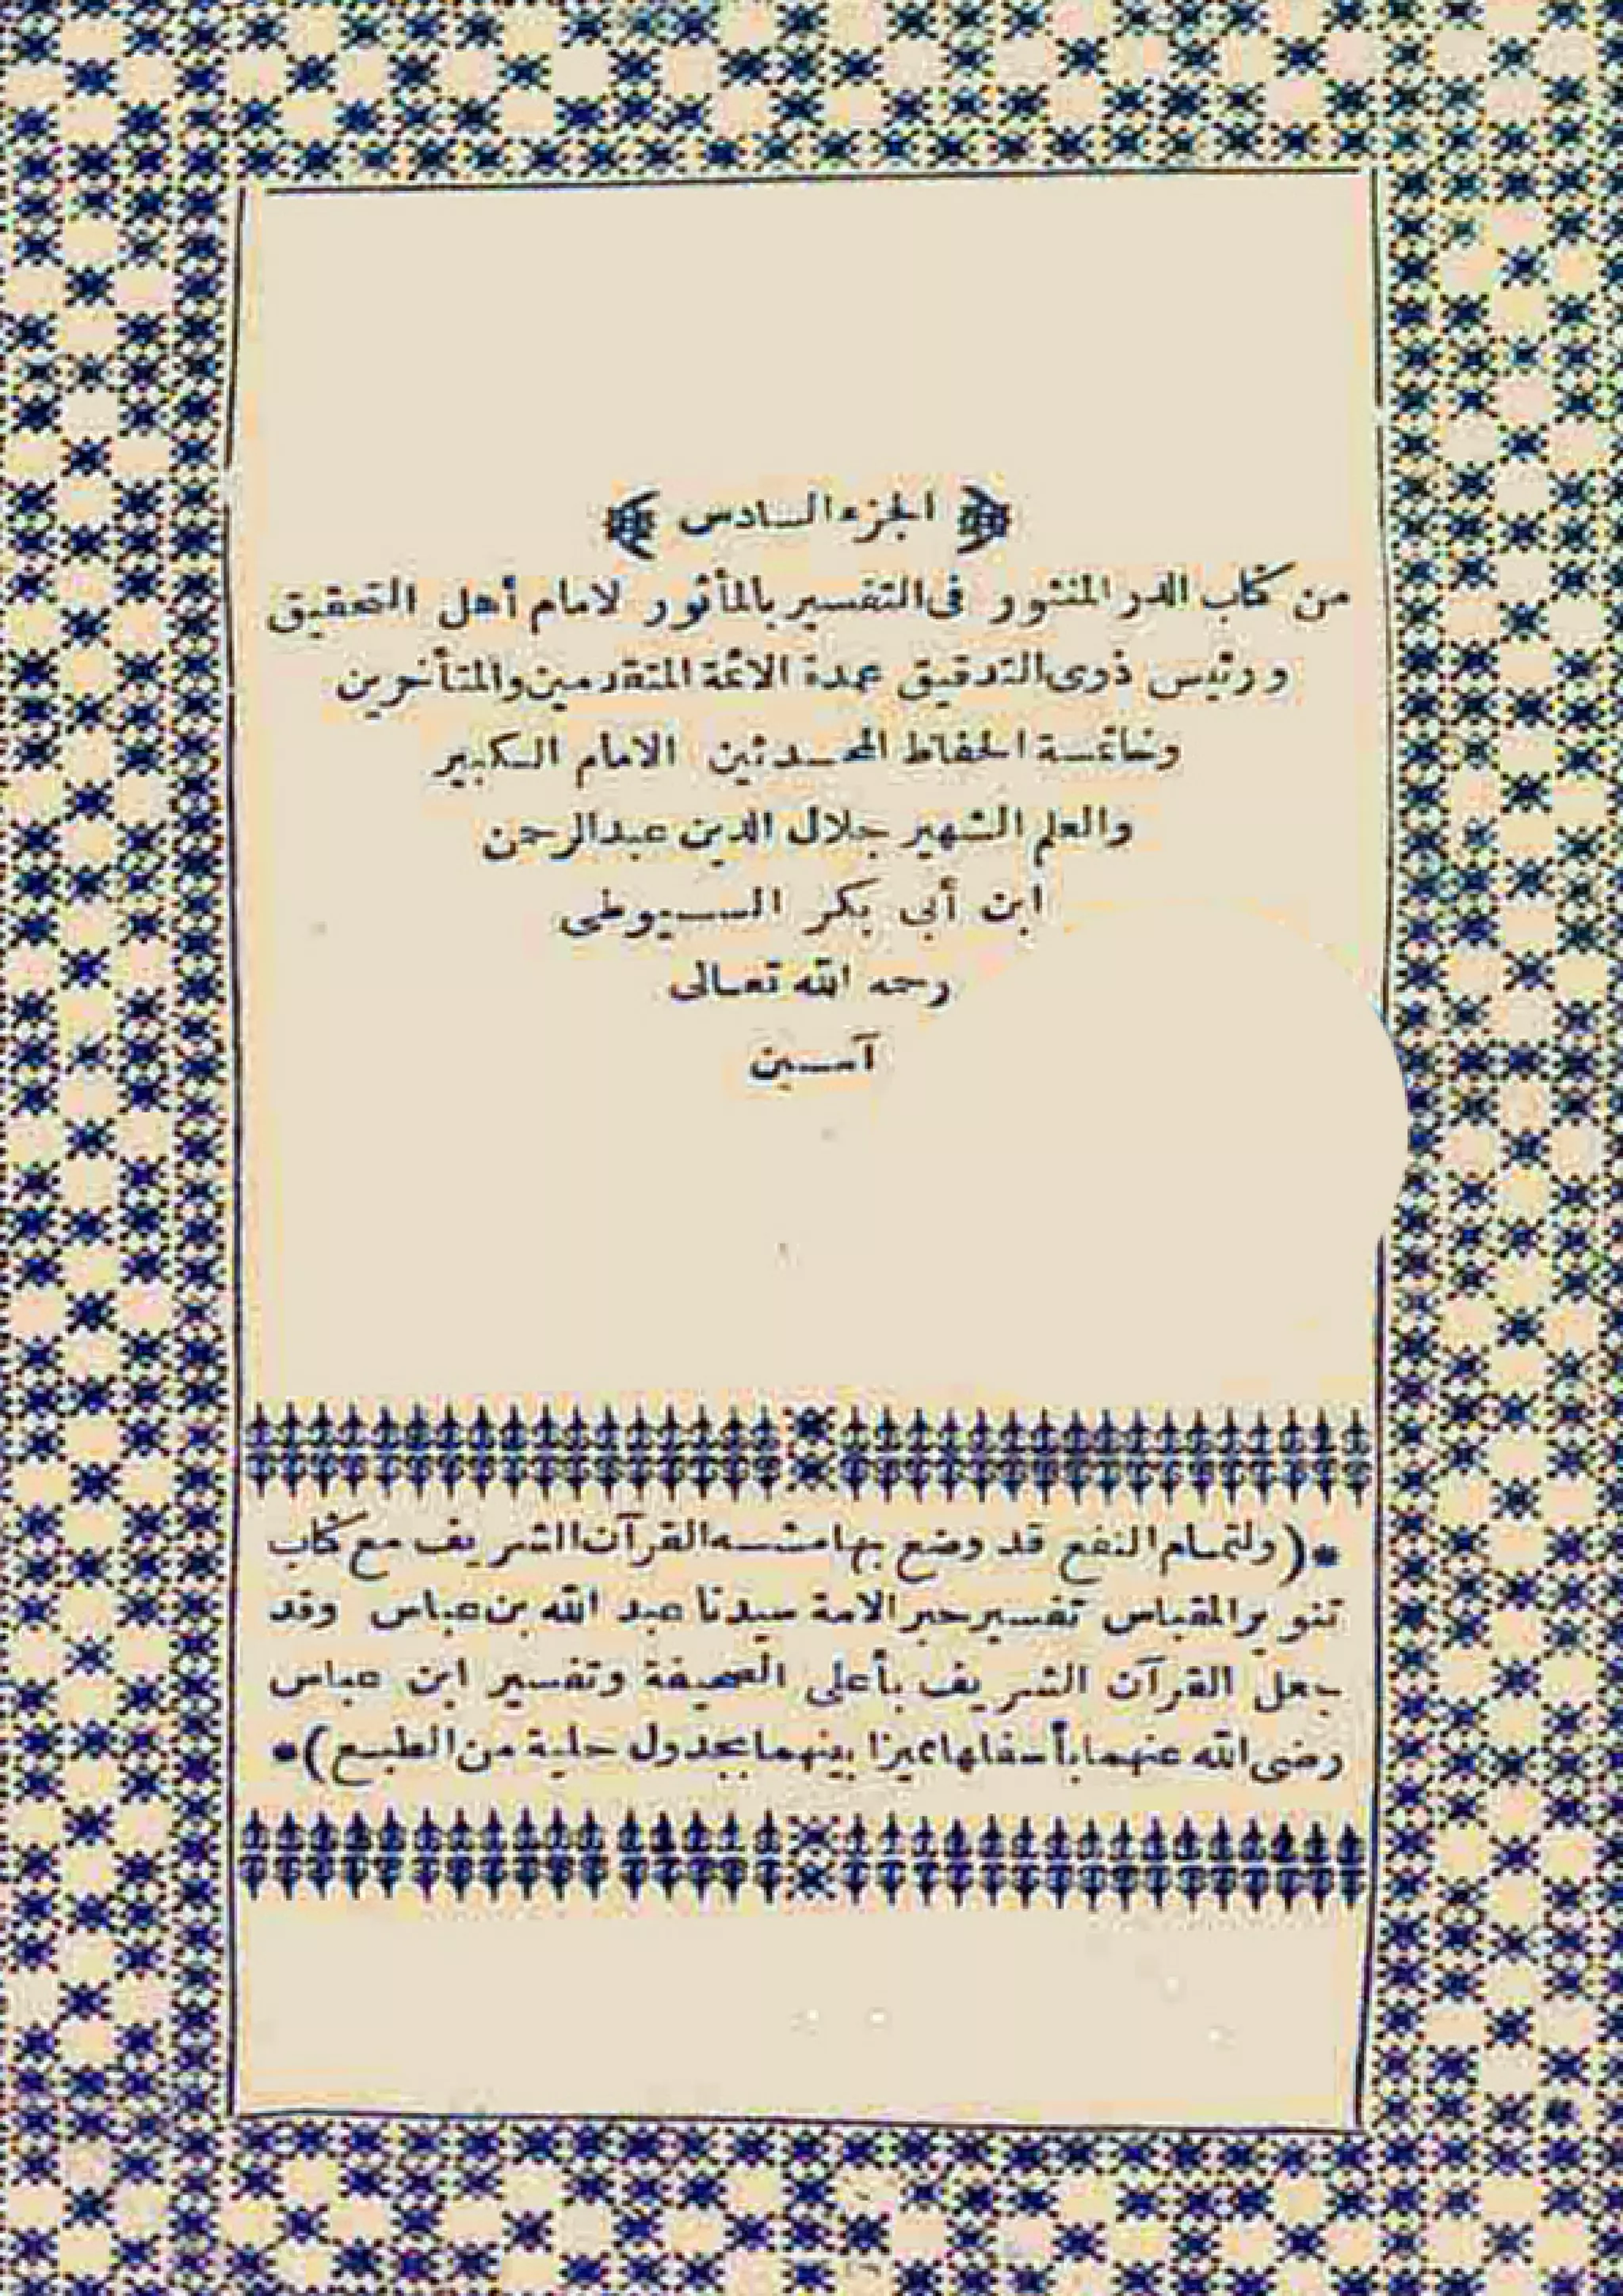 الجزء السادس
من كتاب الدر المنثور فى التفسير بالمأثور لامام أهل التحقيق
ورئيس ذوى التدقيق عمدة الائمة المتقدمين والمتأخرين
وخاتمة الحفاظ المحدثين الامام الكبير
والعلم الشهير جلال الدين عبدالرحمن
ابن أبى بكر السيوطى
رحمه الله تعالى
آمين
*(ولتمام النفع قد وضع بهامشه القرآن الشريف مع كتاب
تنوير المقباس تفسير حبر الامة سيدنا عبد الله بن عباس وقد
جعل القرآن الشريف بأعلى الصحيفة وتفسير ابن عباس
رضى الله عنهما بأسفلها مميزا بينهما بجدول حلية من الطبع)*